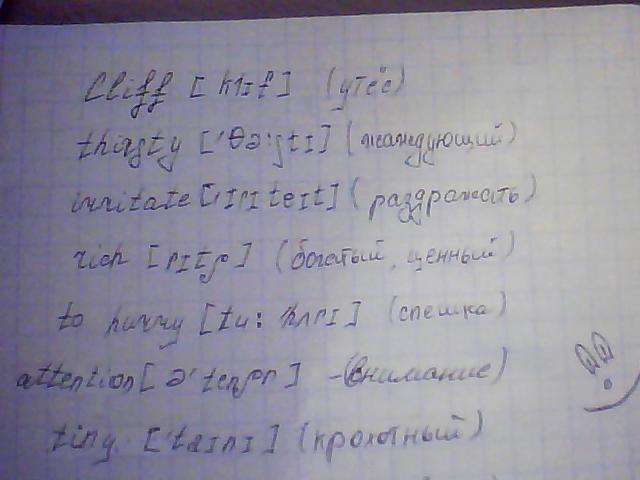 Cliff [klɪf] (утёс)
thirsty ['θə:stɪ] (жаждующий)
irritate ['ɪrɪteɪt] (раздражать)
rich [rɪtʃ] (богатый, ценный)
to hurry [tu: hʌrɪ] (спешка)
attention [ə'tenʃn] - (внимание)
tiny ['taɪnɪ] (крохотный)